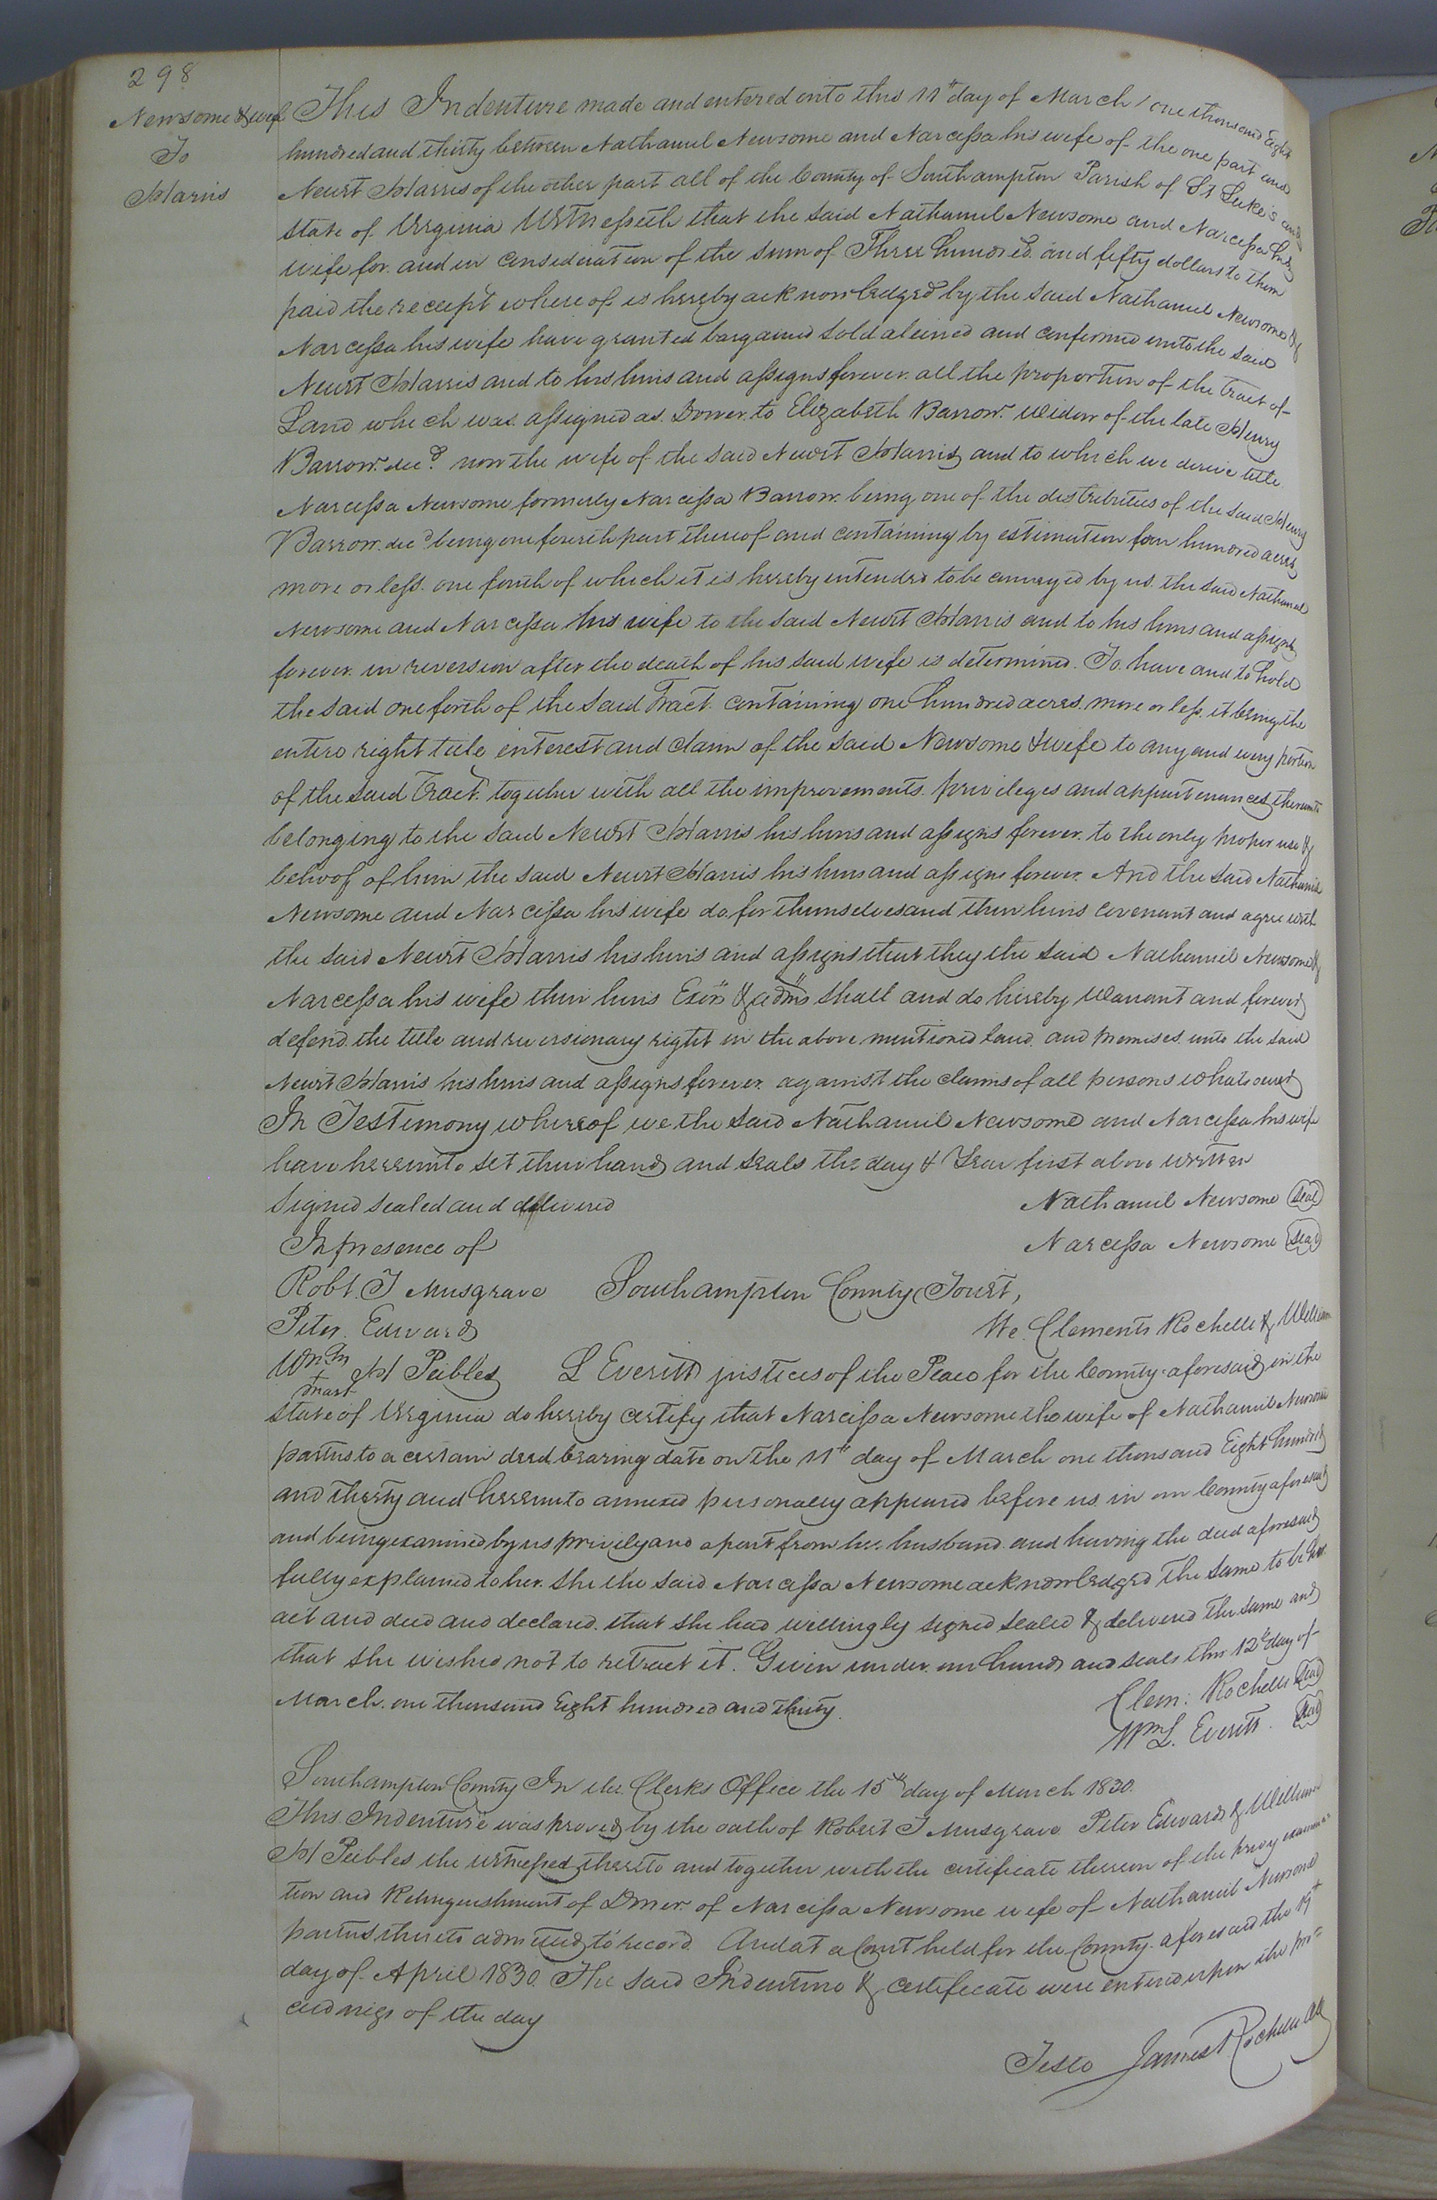 298
Newsome & wife
To
Harris
This Indenture made and entered into this 11th day of March one thousand Eight
hundred and thirty between Nathaniel Newsome and Narcissa his wife of the one part and
Newit Harris of the other part all of the County of Southampton Parish of St Luke's and
State of Virginia Witnesseth that the said Nathaniel Newsome and Narcissa his
wife for and in consideration of the sum of Three hundred and fifty dollars to them
paid the receipt whereof is hereby acknowledged by the said Nathaniel Newsome &
Narcissa his wife have granted bargained sold aliened and confirmed unto the said
Newit Harris and to his heirs and assigns forever all the proportion of the tract of
Land which was assigned as Dower to Elizabeth Barrow widow of the late Henry
Barrow decd now the wife of the said Newit Harris and to which we derive title
Narcissa Newsome formerly Narcissa Barrow being one of the distributees of the said Henry
Barrow decd being one fourth part thereof and containing by estimation four hundred acres
more or less one fourth of which it is hereby intended to be conveyed by us the said Nathaniel
Newsome and Narcissa his wife to the said Newit Harris and to his heirs and assigns
forever in reversion after the death of his said wife is determined. To have and to hold
the said one forth of the said Tract containing one hundred acres more or less it being the
entire right title interest and claim of the said Newsome & wife to any and every portion
of the said Tract together with all the improvements privileges and appurtenances thereunto
belonging to the said Newit Harris his heirs and assigns forever to the only proper use &
behoof of him the said Newit Harris his heirs and assigns forever. And the said Nathaniel
Newsome and Narcissa his wife do for themselves and their heirs covenant and agree with
the said Newit Harris his heirs and assigns that they the said Nathaniel Newsome &
Narcissa his wife their heirs Exors & admrs shall and do hereby Warrant and forever
defend the title and reversionary right in the above mentioned land and premises unto the said
Newit Harris his heirs and assigns forever against the claims of all persons whatsoever
In Testimony whereof we the said Nathaniel Newsome and Narcissa his wife
have hereunto set their hands and seals the day & Year first above written
Signed sealed and delivered Nathaniel Newsome Seal
In presence of Narcissa Newsome Seal
Robt. T Musgrave Southampton County Towit,
Peter Edwards We Clements Rochelle & William
Wm H Peebles L Everitt justices of the Peace for the County aforesaid in the
State of Virginia do hereby certify that Narcissa Newsome the wife of Nathaniel Newsome
parties to a certain deed bearing date on the 11th day of March one thousand Eight hundred
and thirty and hereunto annexed personally appeared before us in our County aforesaid
and being examined by us privily and apart from her husband and having the deed aforesaid
fully explained to her she the said Narcissa Newsome acknowledged the same to be her
act and deed and declared that she had willingly signed sealed & delivered the same and
that she wished not to retract it. Given under our hands and seals this 12th day of
March one thousand Eight hundred and thirty. Clem: Rochelle Seal
Wm L. Everitt Seal
Southampton County In the Clerks Office the 15th day of March 1830.
This Indenture was proved by the oath of Robert T Musgrave Peter Edwards & William
H Peebles the witnesses thereto and together with the certificate thereon of the privy examina-
tion and Relinquishment of Dower of Narcissa Newsome wife of Nathaniel Newsome
parties thereto admitted to record And at a Court held for the County aforesaid the 19th
day of April 1830. The said Indenture & certificate were entered upon the pro-
ceedings of the day
Teste James Rochelle Clk